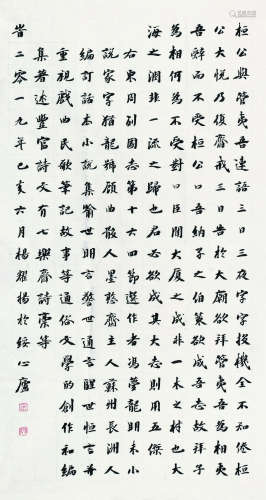 桓公與管夷吾連語三日三夜字字投機全不知倦桓
公大悅乃復齋戒三日告於太廟欲拜管夷吾為相夷
吾辭而不受桓公曰吾納子之伯策欲成吾志故拜子
為相何為不受對曰臣聞大廈之成非一木之材也大
海之潤非一流之歸也君必欲成其大志則用五傑
右東周列國志第十六回節選作者馮夢龍明末小
說家字猶龍號顧曲散人墨憨齋主人蘇州長洲人
編訂話本小說集喻世明言警世通言醒世恒言并
重視戲曲民歌筆記故事等通俗文學的創作和編
集著述豐富詩文有七樂齋詩稿等
時二零一九年己亥六月楊耀楊於經心廬